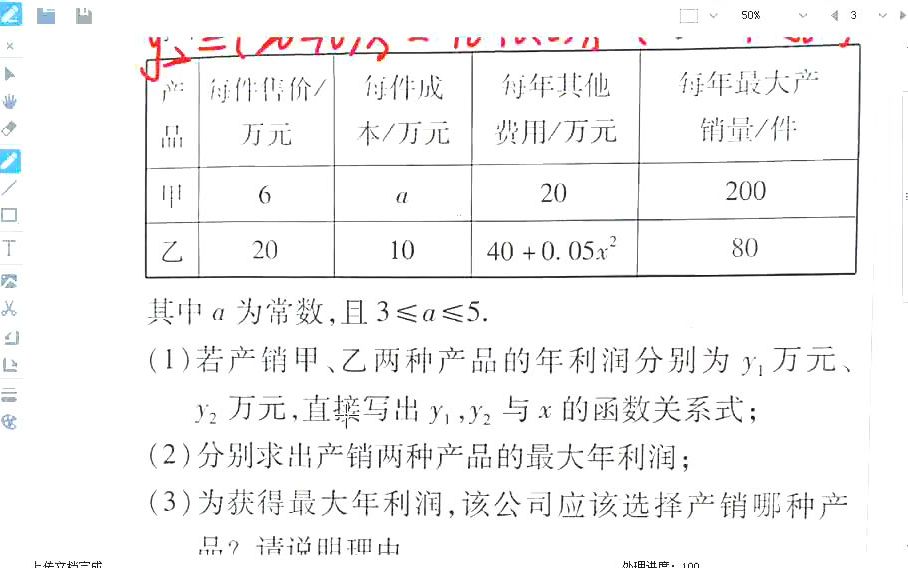 50%
3
产品 每件售价/万元 每件成本/万元 每年其他费用/万元 每年最大产销量/件
甲 6 a 20 200
乙 20 10 40+0.05x² 80
其中 a 为常数,且 3≤a≤5.
(1)若产销甲、乙两种产品的年利润分别为 y₁ 万元、
y₂ 万元,直接写出 y₁,y₂ 与 x 的函数关系式;
(2)分别求出产销两种产品的最大年利润;
(3)为获得最大年利润,该公司应该选择产销哪种产
品?请说明理由
上传文档完成
处理进度:100